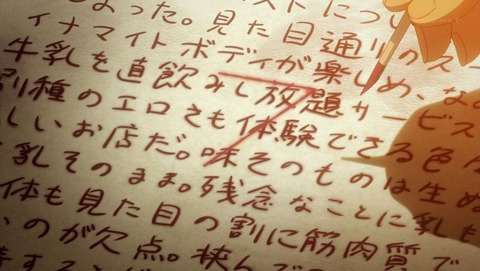 ストについ
よった。見た目通りのス
イナマイトボディが楽しめ、な
牛乳を直飲みし放題サービス
別種のエロさも体験できる色
しいお店だ。味そのものは生ぬ
乳そのまま。残念なことに乳も
体も見た目の割に筋肉質で
のが欠点。挟んで